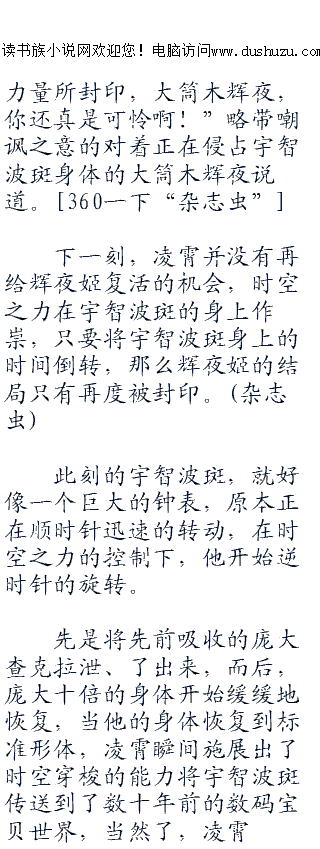 读书族小说网欢迎您！电脑访问www.dushuzu.com
力量所封印，大筒木辉夜，
你还真是可怜啊！”略带嘲
讽之意的对着正在侵占宇智
波斑身体的大筒木辉夜说
道。[360一下“杂志虫”]
下一刻，凌霄并没有再
给辉夜姬复活的机会，时空
之力在宇智波斑的身上作
祟，只要将宇智波斑身上的
时间倒转，那么辉夜姬的结
局只有再度被封印。(杂志
虫)
此刻的宇智波斑，就好
像一个巨大的钟表，原本正
在顺时针迅速的转动，在时
空之力的控制下，他开始逆
时针的旋转。
先是将先前吸收的庞大
查克拉泄、了出来，而后，
庞大十倍的身体开始缓缓地
恢复，当他的身体恢复到标
准形体，凌霄瞬间施展出了
时空穿梭的能力将宇智波斑
传送到了数十年前的数码宝
贝世界，当然了，凌霄